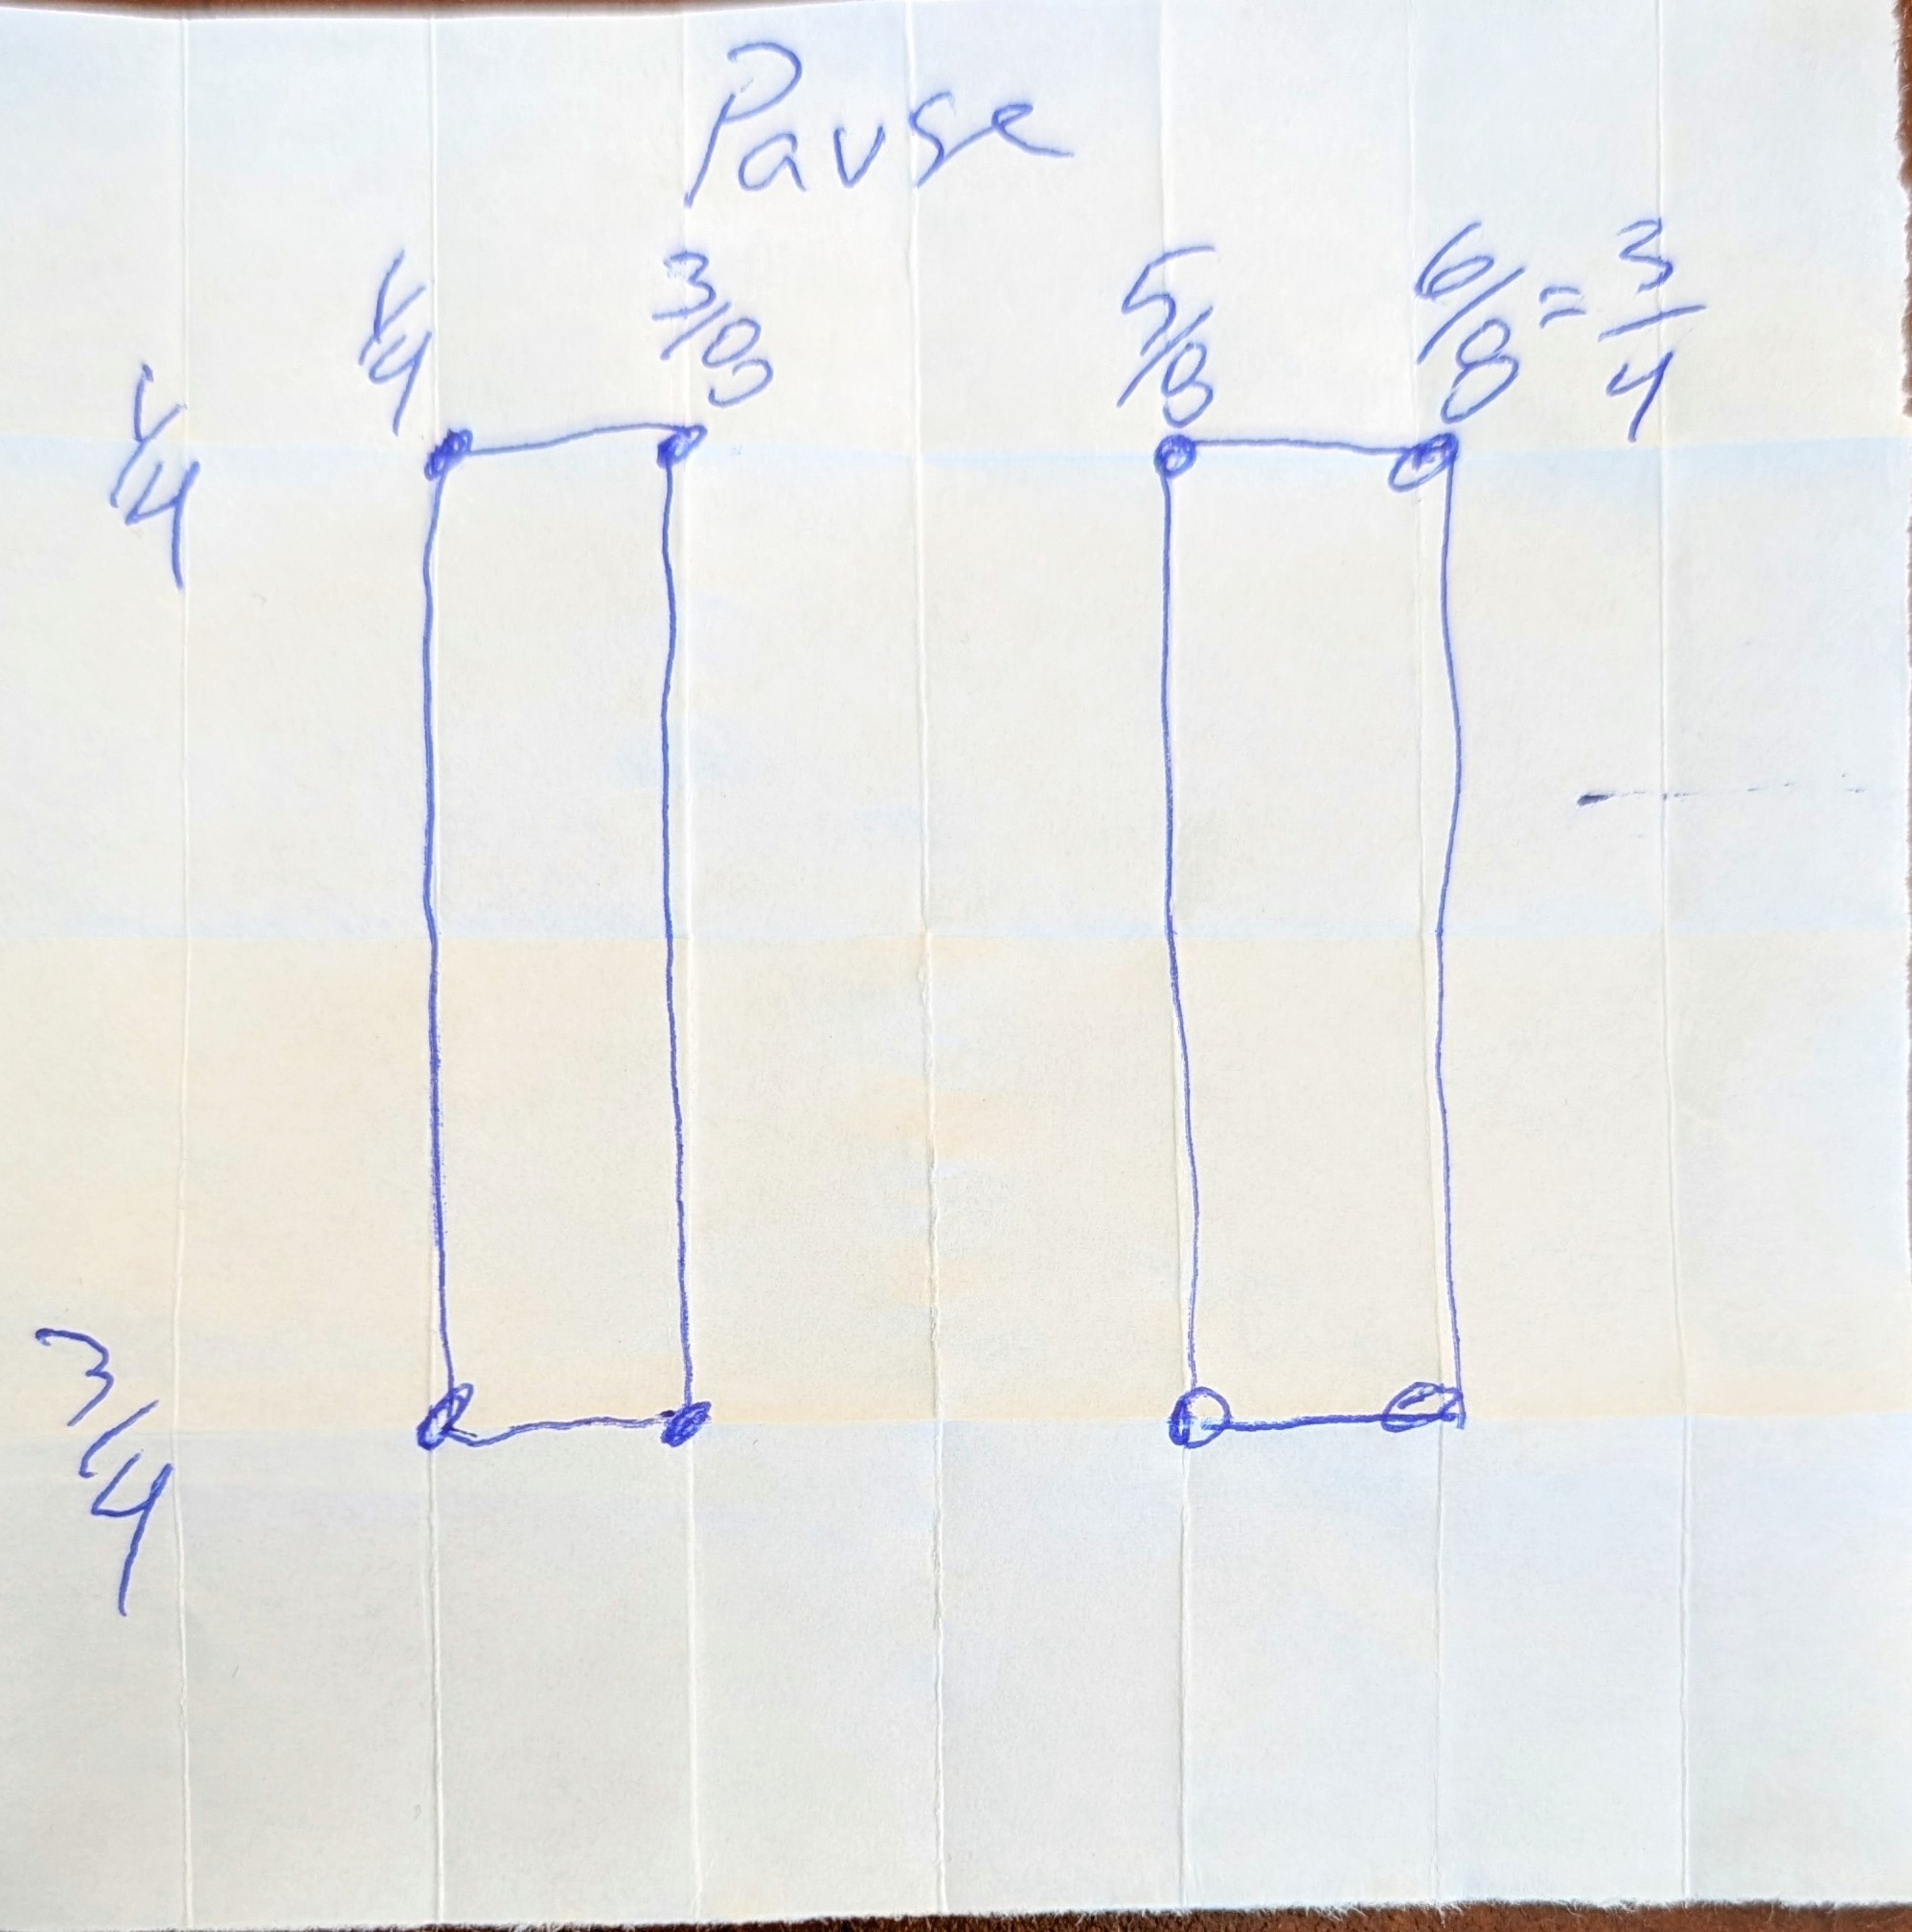 Pause
1/4 3/8 5/8 6/8 = 3/4
1/4
3/4